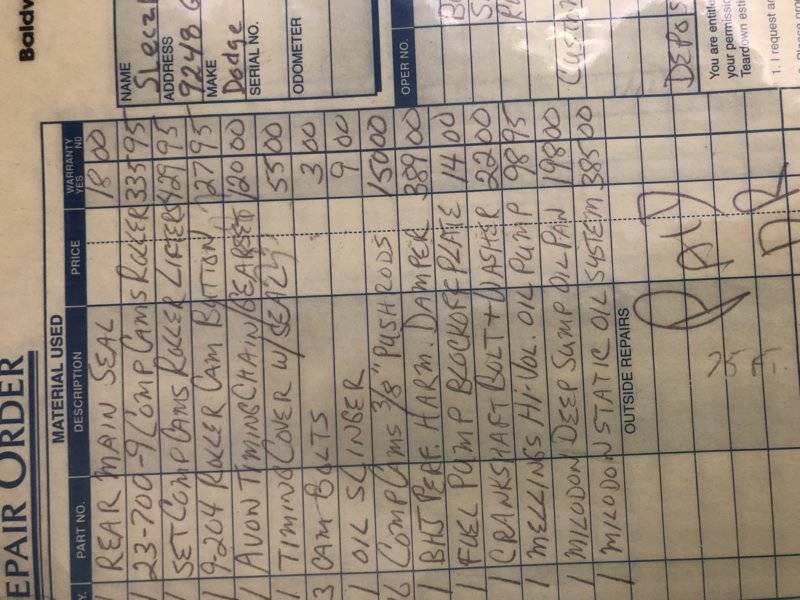 Baldw
EPAIR ORDER
MATERIAL USED
Y. PART NO. DESCRIPTION PRICE WARRANTY YES NO
1 REAR MAIN SEAL 18 00
1 23-700-9 COMP CAMS ROLLER 335 95
1 SET COMP CAMS ROLLER LIFTERS 429 95
1 9-204 ROLLER CAM BUTTON 27 95
1 AVON TIMING CHAIN/GEARSET 120 00
1 TIMING COVER W/SEAL 55 00
3 CAM BOLTS 3 00
1 OIL SLINGER 9 00
COMP CAMS 3/8" PUSH RODS 150 00
1 BHJ PERF. HARM. DAMPER 389 00
1 FUEL PUMP BLOCKOFF PLATE 14 00
1 CRANKSHAFT BOLT + WASHER 22 00
1 MELLINGS HI-VOL. OIL PUMP 98 95
1 MILODON DEEP SUMP OIL PAN 198 00
1 MILODON STATIC OIL SYSTEM 385 00
OUTSIDE REPAIRS
PAID
NAME
ADDRESS
9248
MAKE
Dodge
SERIAL NO.
ODOMETER
OPER NO.
Custom
DEPOS
You are entitl
your permissio
Teardown esti
1. I request ac